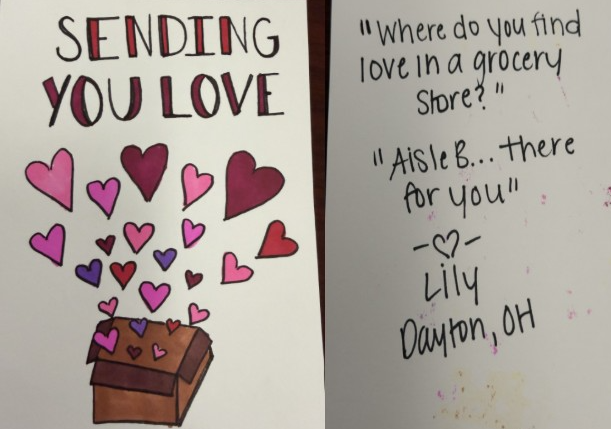 SENDING
YOU LOVE
"Where do you find
love in a grocery
Store?"
"Aisle B... there
for you"
-♡-
Lily
Dayton, OH